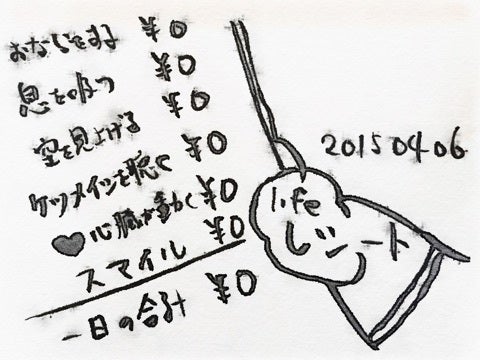 おならをする ¥0
息を吸う ¥0
空を見上げる ¥0
ケツメイシを聴く ¥0
♥心臓が動く ¥0
スマイル ¥0
一日の合計 ¥0
2015 04 06
life
レシート